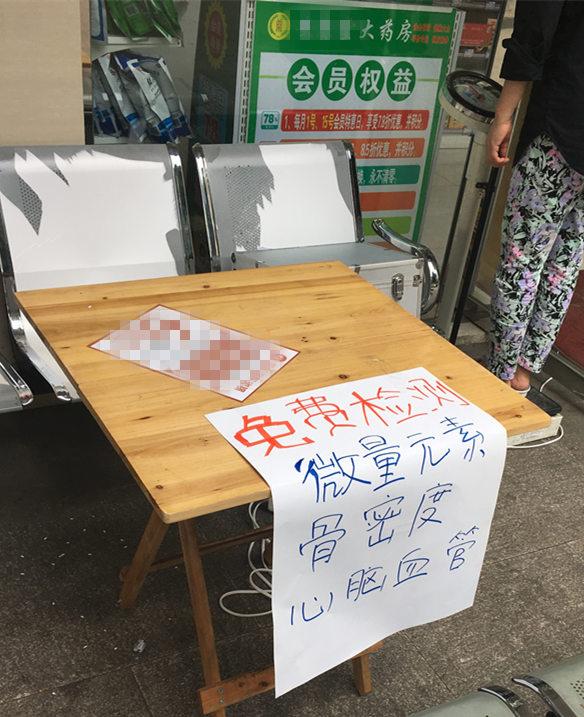 大药房
会员权益
78折
1、每月1号、15号会员特惠日，享受78折优惠，并积分
85折优惠，并积分
永不清零
免费检测
微量元素
骨密度
心脑血管